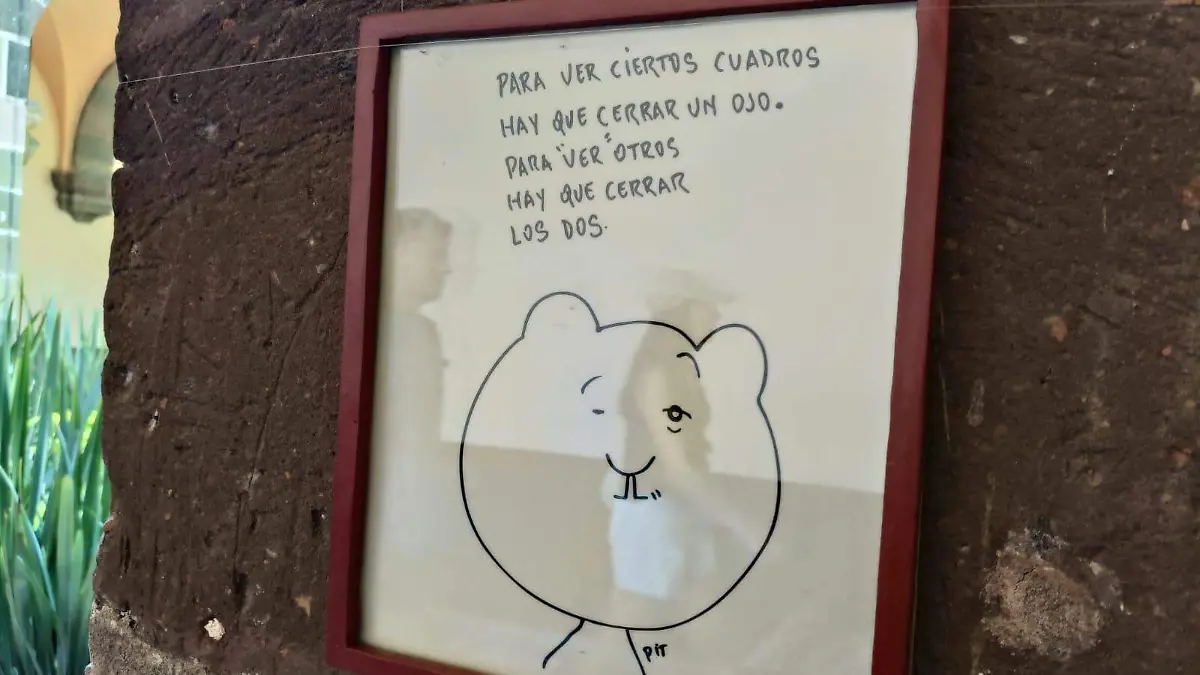 PARA VER CIERTOS CUADROS
HAY QUE CERRAR UN OJO.
PARA "VER" OTROS
HAY QUE CERRAR
LOS DOS.
PIT